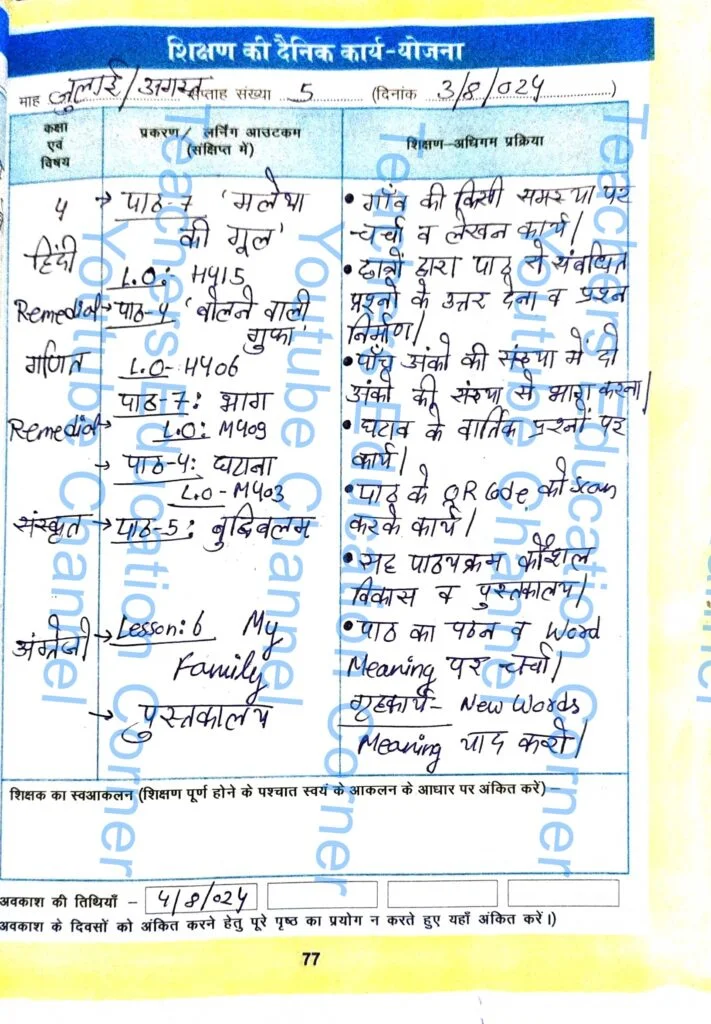 शिक्षण की दैनिक कार्य-योजना
माह जुलाई/अगस्त सप्ताह संख्या 5 (दिनांक 3/8/024)
कक्षा एवं विषय
प्रकरण / लर्निंग आउटकम (संक्षिप्त में)
शिक्षण-अधिगम प्रक्रिया
4
हिंदी
Remedial
गणित
Remedial
संस्कृत
अंग्रेजी
→ पाठ-7 'मलेथा
की गूल'
L.O: H415
→ पाठ-4 'बोलने वाली
गुफा'
L.O- H406
पाठ-7: भाग
L.O: M409
→ पाठ-4: घटाना
L.O- M403
→ पाठ-5: बुद्धिबलम
→ Lesson: 6 My
Family
→ पुस्तकालय
• गाँव की किसी समस्या पर
चर्चा व लेखन कार्य।
• छात्रों द्वारा पाठ से संबंधित
प्रश्नों के उत्तर देना व प्रश्न
निर्माण।
• पाँच अंको की संख्या में दो
अंको की संख्या से भाग करना।
• घटाव के वार्तिक प्रश्नों पर
कार्य।
• पाठ के QR Code को Scan
करके कार्य।
• सह पाठयक्रम कौशल
विकास व पुस्तकालय।
• पाठ का पठन व Word
Meaning पर चर्चा।
गृहकार्य- New Words
Meaning याद करो।
शिक्षक का स्वआकलन (शिक्षण पूर्ण होने के पश्चात स्वयं के आकलन के आधार पर अंकित करें) –
अवकाश की तिथियाँ - 4/8/024
अवकाश के दिवसों को अंकित करने हेतु पूरे पृष्ठ का प्रयोग न करते हुए यहाँ अंकित करें।)
77
Teachers Education Corner
Youtube Channel
Teachers Education Corner
Youtube Channel